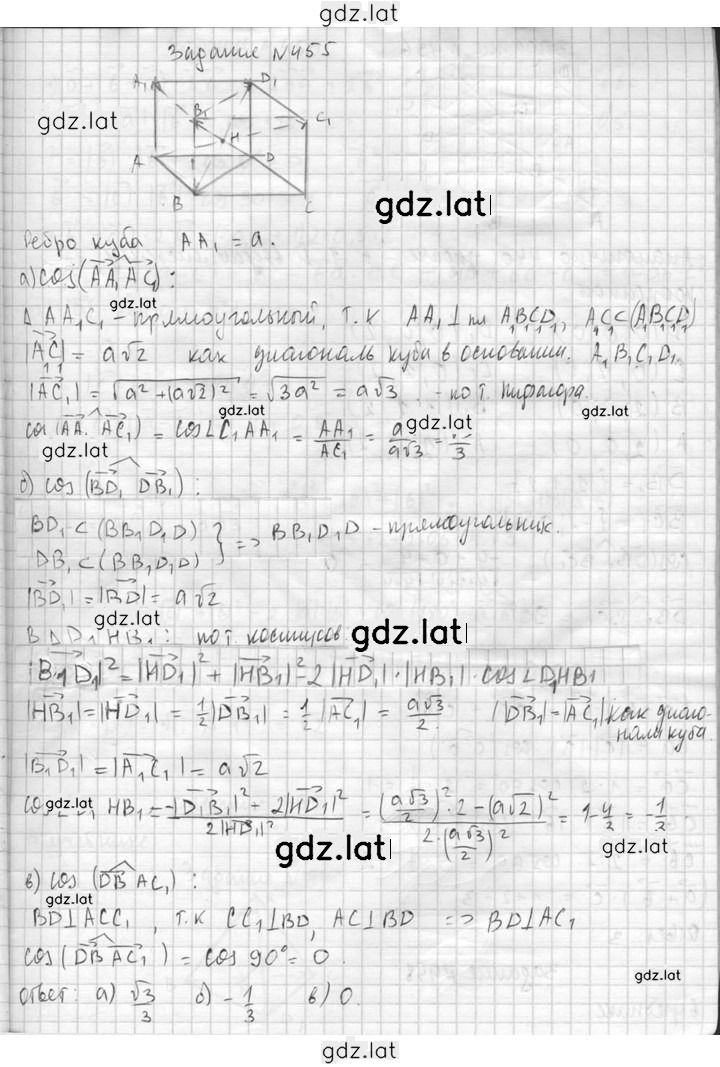 gdz.lat
Задание №455
A₁ D₁
B₁ C₁
gdz.lat
H
A D
B C
gdz.lat
Ребро куба AA₁ = a.
а) cos(AA₁ AC₁) :
gdz.lat
Δ AA₁C₁ - прямоугольный, т.к AA₁ ⊥ пл A₁B₁C₁D₁, A₁C₁ ⊂ (A₁B₁C₁D₁)
|A₁C₁| = a√2 как диагональ куба в основании. A₁B₁C₁D₁.
|AC₁| = √(a² + (a√2)²) = √3a² = a√3 - по т. Пифагора.
gdz.lat gdz.lat gdz.lat
cos (AA₁ AC₁) = cos∠C₁AA₁ = AA₁/AC₁ = a/a√3 = /3
gdz.lat
б) cos (BD₁ DB₁) :
BD₁ ⊂ (BB₁D₁D)
DB₁ ⊂ (BB₁D₁D) } => BB₁D₁D - прямоугольник.
|BD₁| = |BD| = a√2
gdz.lat gdz.lat
В Δ D₁HB₁ : по т. косинусов:
|B₁D₁|² = |HD₁|² + |HB₁|² - 2|HD₁|·|HB₁|·cos∠D₁HB₁
|HB₁| = |HD₁| = 1/2|DB₁| = 1/2|AC₁| = a√3/2. |DB₁| = |AC₁| как диаго-
нали куба.
|B₁D₁| = |A₁C₁| = a√2
gdz.lat
cos HB₁ = -|D₁B₁|² + 2|HD₁|² / 2|HD₁|² = (a√3/2)²·2 - (a√2)² / 2·(a√3/2)² = 1 - 4/3 = -1/3
gdz.lat
в) cos (DB AC₁) :
gdz.lat
BD ⊥ ACC₁, т.к CC₁ ⊥ BD, AC ⊥ BD => BD ⊥ AC₁
cos (DB AC₁) = cos 90° = 0.
gdz.lat
ответ: а) √3/3 б) -1/3 в) 0.
gdz.lat